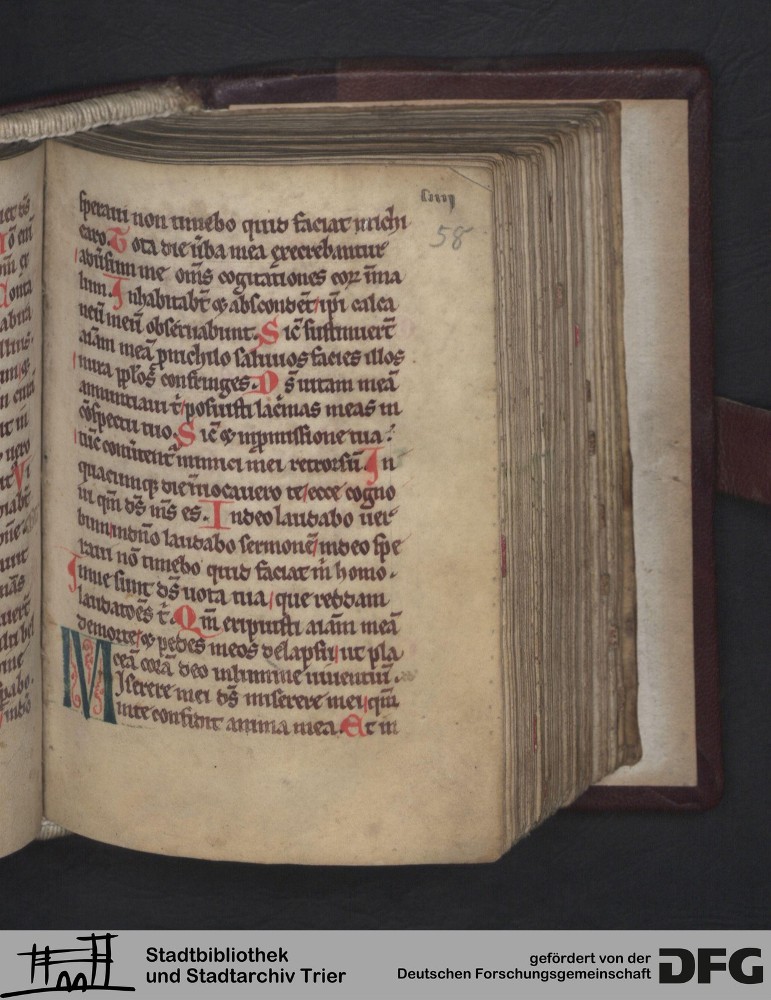 speraui non timebo quid faciat michi
caro. Tota die ũba mea execrebantur
aduẽsum me om̃s cogitationes eoꝝ ĩ ma
lum. Inhabitabt̃ & abscondẽt ip̃i calca
neũ meũ obseruabunt. Sic̃ sustinuert̃
aĩam meã ꝓ nichilo saluuos facies illos
in ira pplos̃ confringes. Ds̃ uitam meã
annuntiaui t̃ posuisti lac̃mas meas in
cõspectu tuo. Sic̃ & in ꝓmissione tua
tũc conũtent̃ inimici mei retrorsũ. In
quacumqꝫ die ĩuocauero te ecce cogno
ui qm̃ ds̃ ms̃ es. In deo laudabo uer
bum in dño laudabo sermonẽ in deo spe
raui nõ timebo quid faciat m̃ homo.
In me sunt ds̃ uota tua que reddam
laudatoẽs t̃. Qm̃ eripuisti aĩam meã
de morte & pedes meos de lapsu ut pla
ceã corã deo in lumine uiuentiũ.
MIserere mei ds̃ miserere mei qm̃
in te confidit anima mea. Et in
58
Stadtbibliothek
und Stadtarchiv Trier
gefördert von der
Deutschen Forschungsgemeinschaft
DFG